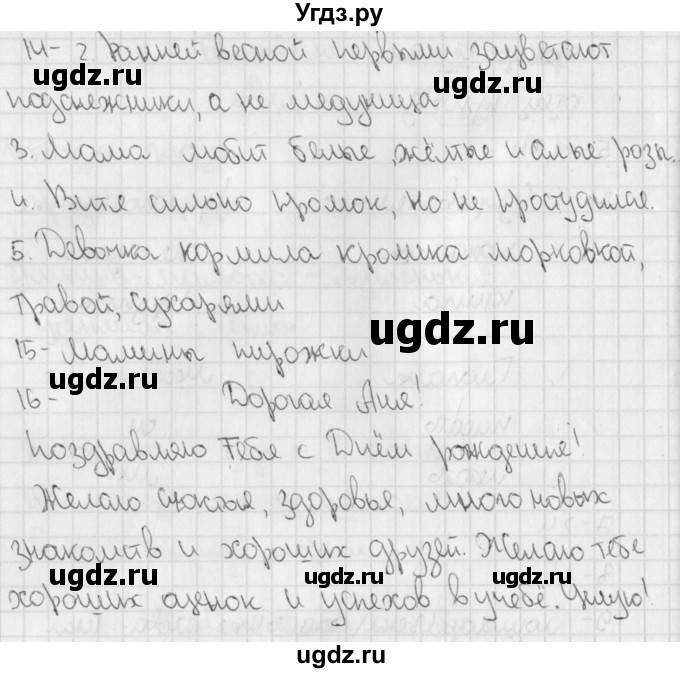 Угдз.ру
14- 2 Ранней весной первыми зацветают
ugdz.ru ugdz.ru
подснежники, а не медуница
ugdz.ru ugdz.ru
3. Мама любит белые, жёлтые и алые розы.
4. Витя сильно промок, но не простудился.
ugdz.ru ugdz.ru
5. Девочка кормила кролика морковкой,
травой, сухарями
ugdz.ru
15- Мамины пирожки
ugdz.ru
16- Дорогая Аня!
Поздравляю Тебя с Днём рождения!
ugdz.ru ugdz.ru
Желаю счастья, здоровья, много новых
знакомств и хороших друзей. Желаю тебе
ugdz.ru ugdz.ru ugdz.ru
хороших оценок и успехов в учебе. Целую!
ugdz.ru